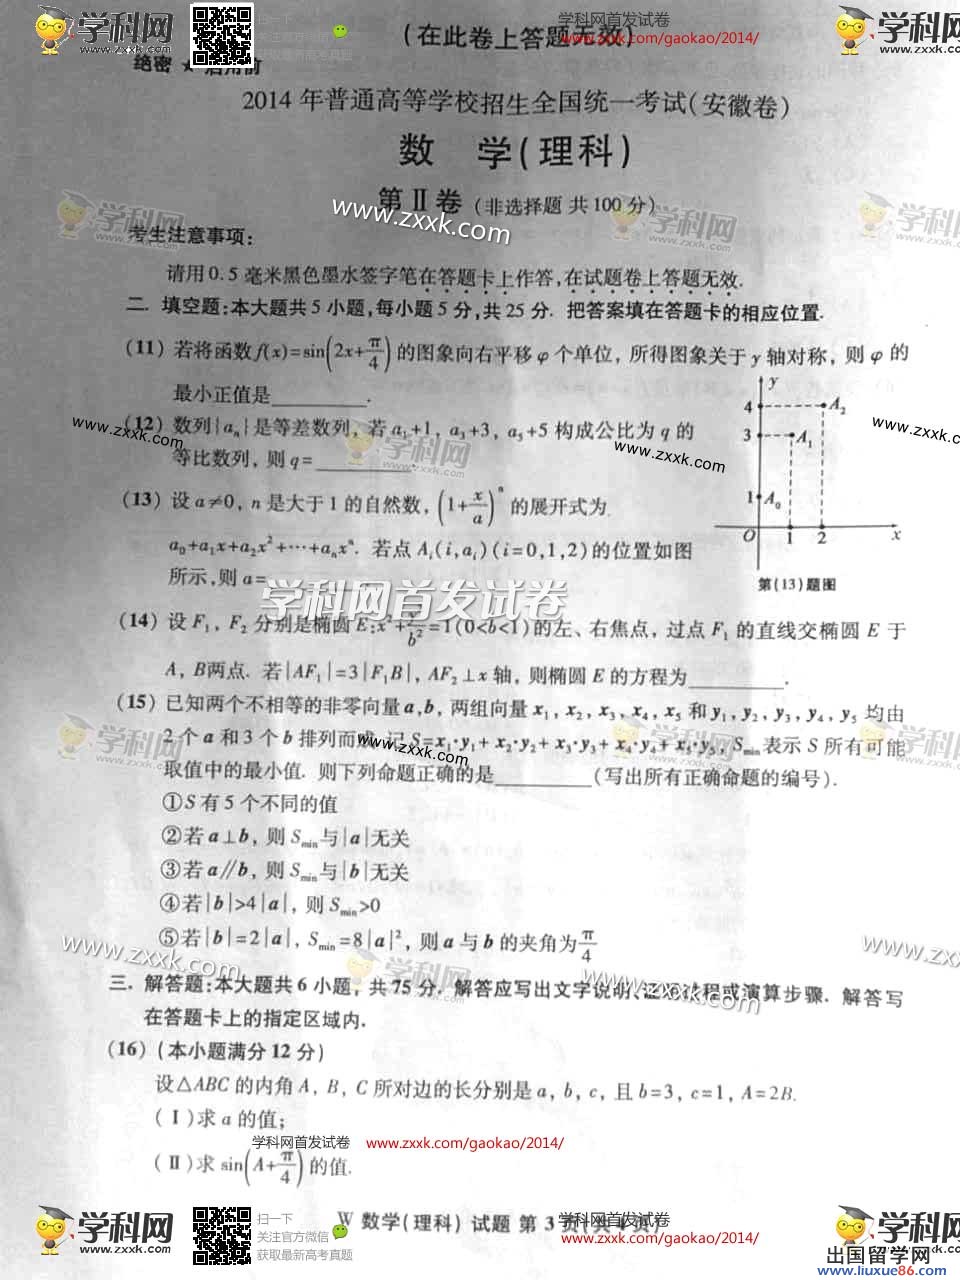 学科网
www.zxxk.com
扫一扫
关注官方微信
获取最新高考真题
学科网首发试卷
www.zxxk.com/gaokao/2014/
(在此卷上答题无效)
绝密★启用前
2014年普通高等学校招生全国统一考试(安徽卷)
数 学(理科)
第Ⅱ卷 (非选择题 共100分)
www.zxxk.com
考生注意事项:
请用0.5毫米黑色墨水签字笔在答题卡上作答,在试题卷上答题无效.
二. 填空题:本大题共5小题,每小题5分,共25分. 把答案填在答题卡的相应位置.
(11) 若将函数f(x)=sin(2x+π/4)的图象向右平移φ个单位, 所得图象关于y轴对称, 则φ的
最小正值是________.
(12) 数列{aₙ}是等差数列, 若a₁+1, a₃+3, a₅+5构成公比为q的
等比数列, 则q=________.
(13) 设a≠0, n是大于1的自然数, (1+x/a)ⁿ的展开式为
a₀+a₁x+a₂x²+···+aₙxⁿ. 若点Aᵢ(i,aᵢ)(i=0,1,2)的位置如图
所示,则a=________
y
4 A₂
3 A₁
1 A₀
O 1 2 x
第(13)题图
学科网首发试卷
(14) 设F₁, F₂分别是椭圆E:x²+y²/b²=1(0<b<1)的左、右焦点, 过点F₁的直线交椭圆E于
A, B两点. 若|AF₁|=3|F₁B|, AF₂⊥x轴, 则椭圆E的方程为________.
(15) 已知两个不相等的非零向量a,b, 两组向量x₁, x₂, x₃, x₄, x₅和y₁, y₂, y₃, y₄, y₅均由
2个a和3个b排列而成.记S=x₁·y₁+x₂·y₂+x₃·y₃+x₄·y₄+x₅·y₅, Sₘᵢₙ表示S所有可能
取值中的最小值. 则下列命题正确的是________(写出所有正确命题的编号).
①S有5个不同的值
②若a⊥b, 则Sₘᵢₙ与|a|无关
③若a∥b, 则Sₘᵢₙ与|b|无关
④若|b|>4|a|, 则Sₘᵢₙ>0
⑤若|b|=2|a|, Sₘᵢₙ=8|a|², 则a与b的夹角为π/4
三. 解答题:本大题共6小题, 共75分. 解答应写出文字说明、证明过程或演算步骤. 解答写
在答题卡上的指定区域内.
(16) (本小题满分12分)
设△ABC的内角A, B, C所对边的长分别是a, b, c, 且b=3, c=1, A=2B.
(Ⅰ)求a的值;
学科网首发试卷 www.zxxk.com/gaokao/2014/
(Ⅱ)求sin(A+π/4)的值.
W 数学(理科)试题 第3页(共4页)
学科网
www.zxxk.com
扫一扫
关注官方微信
获取最新高考真题
www.zxxk.com/gaokao/2014/
出国留学网
www.liuxue86.com